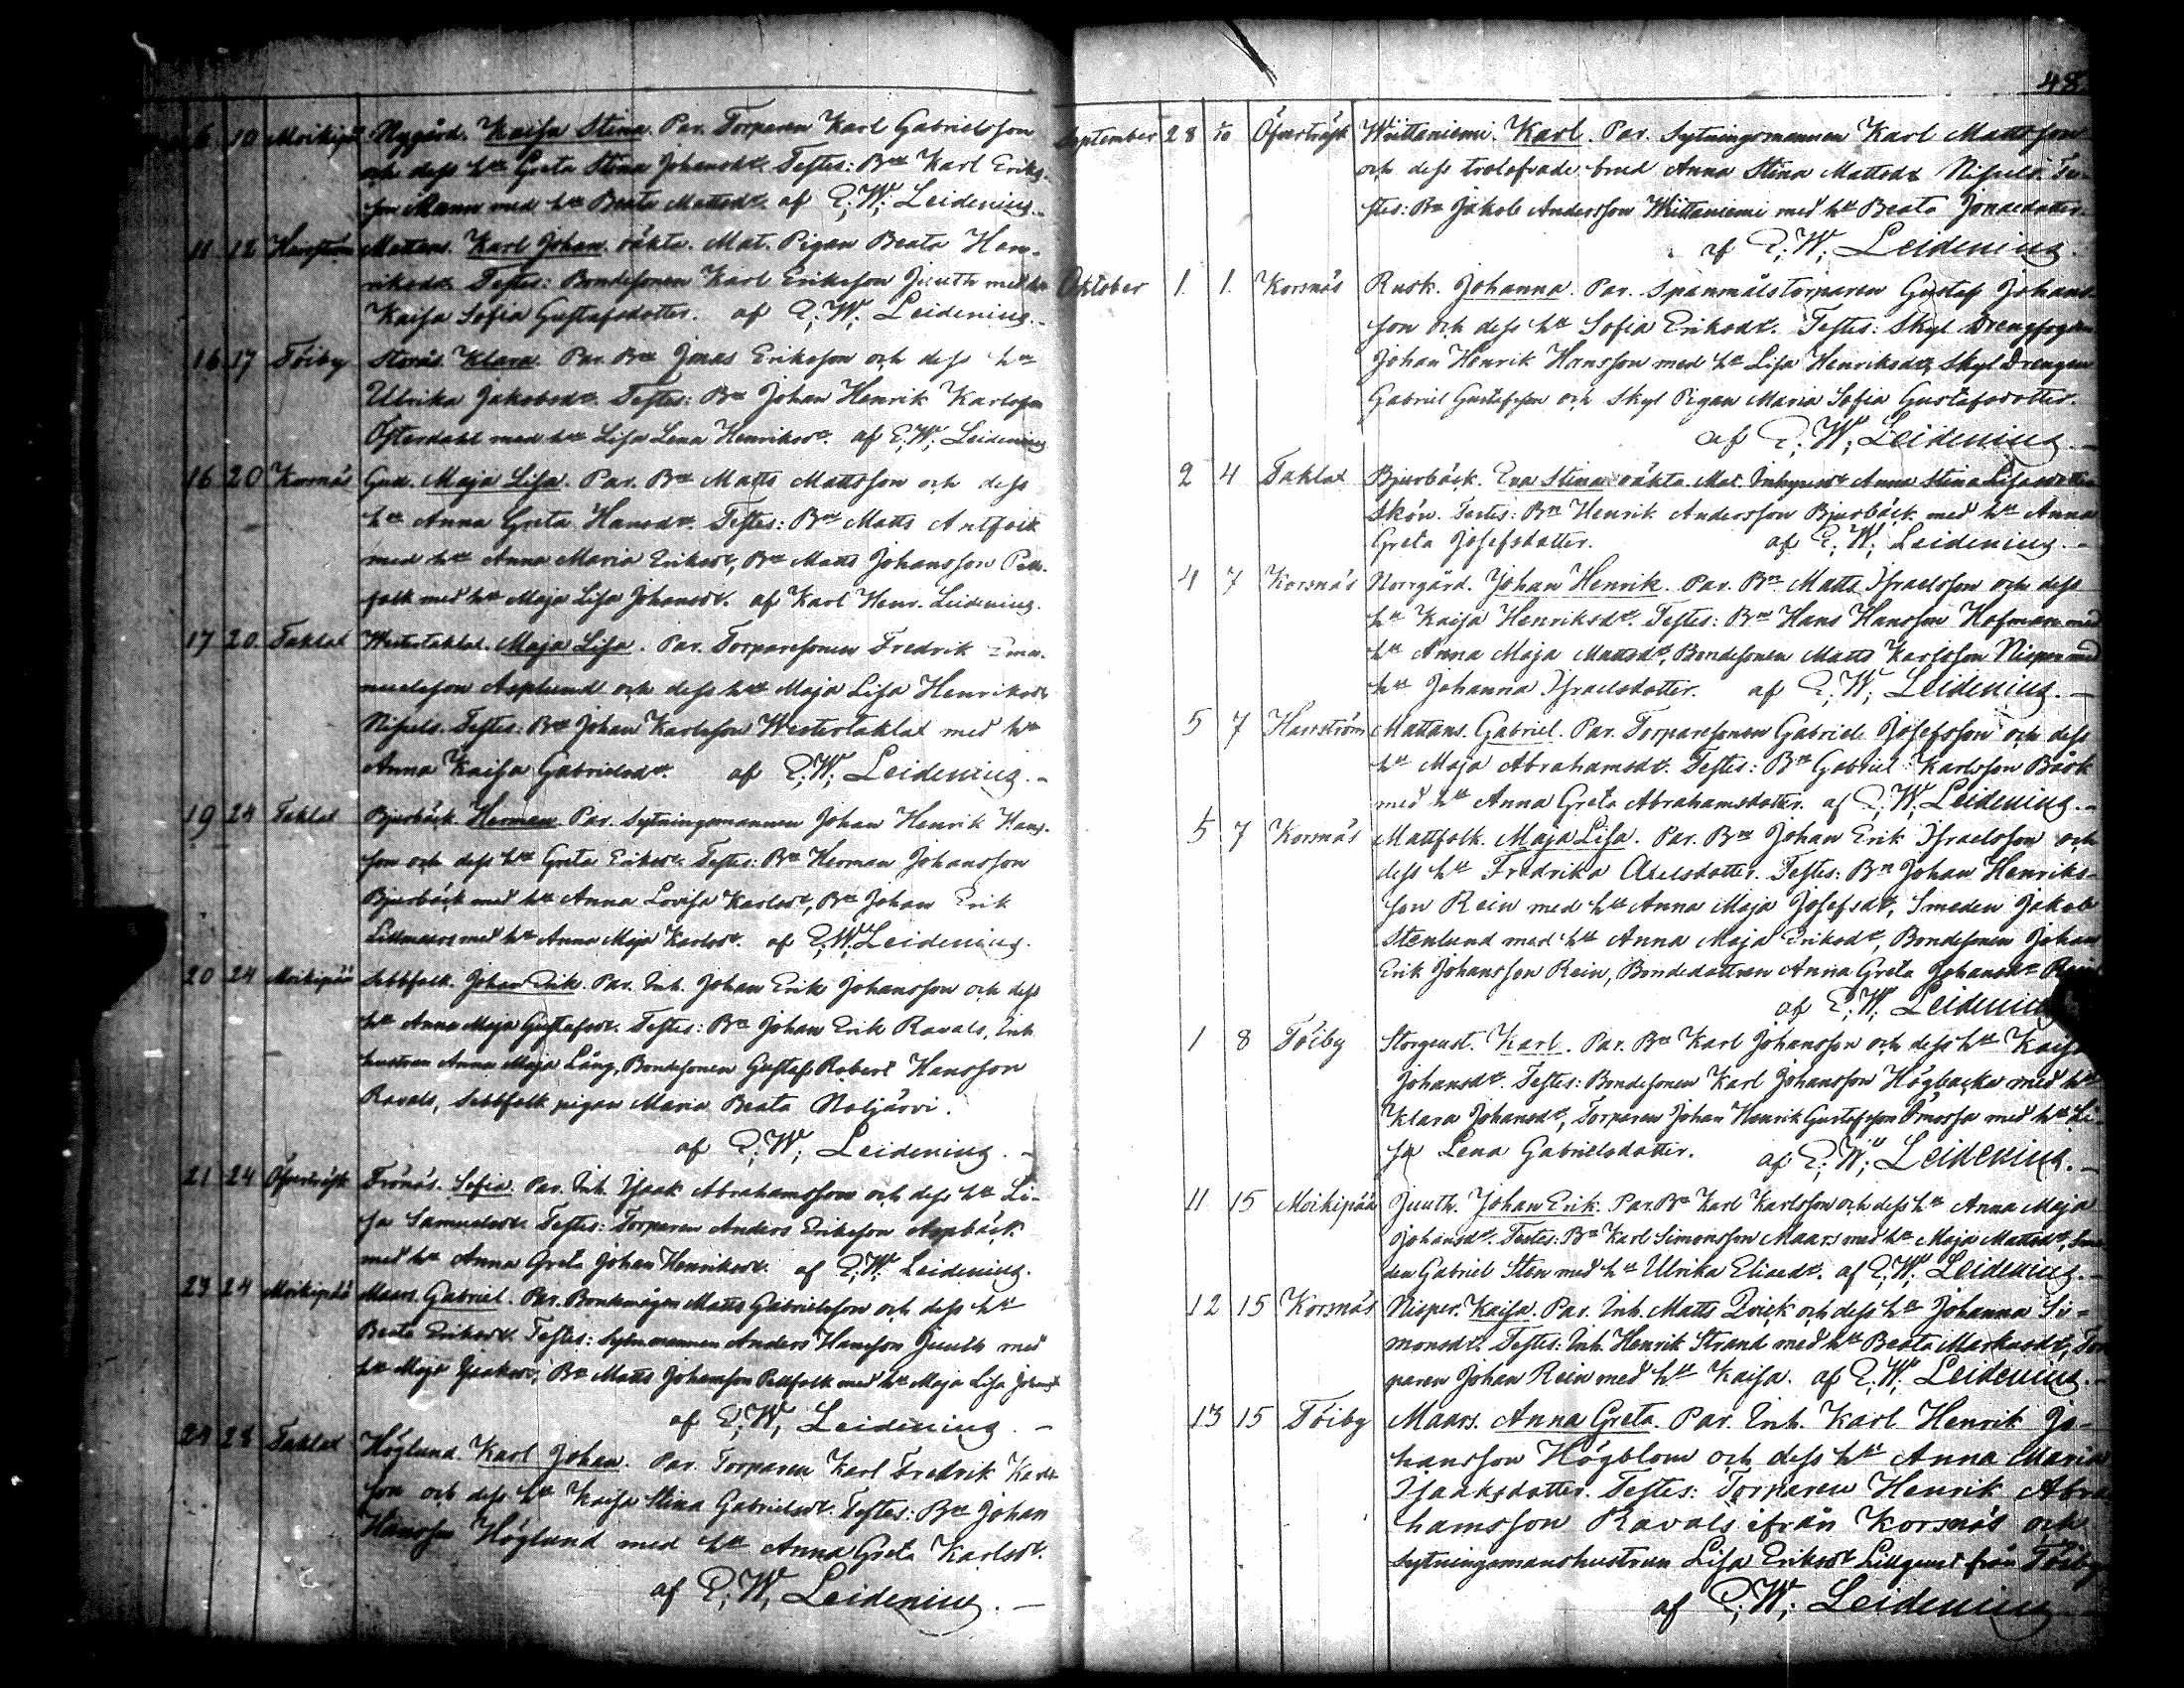 6 10 Moikipä Nygård. Kaisa Stina. Par. Torparen Karl Gabrielsson
och dess h:u Greta Stina Johansd:r. Testes: B:n Karl Eriks-
son Mann med h:u Beata Mattsd:r. af E. W. Leidenius.
11 12 Harrström Mattans. Karl Johan. oäkta. Mat. Pigan Beata Hen-
riksd:r. Testes: Bondesonen Karl Eriksson Juuth med h:u
Kaisa Sofia Gustafsdotter. af E. W. Leidenius.
16 17 Töiby Storås. Klara. Par. B:n Jonas Eriksson och dess h:u
Ulrika Jakobsd:r. Testes: B:n Johan Henrik Karlsson
Österdahl med h:u Lisa Lena Henriksd:r. af E. W. Leidenius
16 20 Korsnäs Gud. Maja Lisa. Par. B:n Matts Mattsson och dess
h:u Anna Greta Hansd:r. Testes: B:n Matts Antfolk
med h:u Anna Maria Eriksd:r, B:n Matts Johansson Pell-
folk med h:u Maja Lisa Johansd:r. af Karl Henr. Leidenius.
17 20 Taklax Westertaklax. Maja Lisa. Par. Torparesonen Fredrik Ema-
nuelsson Asplund och dess h:u Maja Lisa Henriksd:r
Nissels. Testes: B:n Johan Karlsson Westertaklax med h:u
Anna Kaisa Gabrielsd:r. af E. W. Leidenius.
19 24 Taklax Bjurbäck. Herman. Par. Sytningsmannen Johan Henrik Hans-
son och dess h:u Greta Eriksd:r. Testes: B:n Herman Johansson
Bjurbäck med h:u Anna Lovisa Karlsd:r, B:n Johan Erik
Lillmaars med h:u Anna Maja Karlsd:r. af E. W. Leidenius.
20 24 Moikipää Sebbfolk. Johan Erik. Par. Inh. Johan Erik Johansson och dess
h:u Anna Maja Gustafsd:r. Testes: B:n Johan Erik Ravals, Inh.
hustrun Anna Maja Lång, Bondesonen Gustaf Robert Hansson
Ravals, Sebbfolk pigan Maria Beata Noljärvi.
af E. W. Leidenius.
21 24 Öfverträsk Frönäs. Sofia. Par. Inh. Isaak Abrahamsson och dess h:u Li-
sa Samuelsd:r. Testes: Torparen Anders Eriksson Aspbäck
med h:u Anna Greta Johan Henriksd:r. af E. W. Leidenius.
23 24 Moikipää Maars. Gabriel. Par. Bondemågen Matts Gabrielsson och dess h:u
Beata Eriksd:r. Testes: Sytn.mannen Anders Hansson Juuth med
h:u Maja Isaksd:r, B:n Matts Johansson Pellfolk med h:u Maja Lisa Johansd:r
af E. W. Leidenius.
24 28 Taklax Höglund. Karl Johan. Par. Torparen Karl Fredrik Karls-
son och dess h:u Kaisa Stina Gabrielsd:r. Testes: B:n Johan
Hansson Höglund med h:u Anna Greta Karlsd:r.
af E. W. Leidenius.
48.
September 28 Öfverträsk Wiittaniemi. Karl. Par. Sytningsmannen Karl Mattsson
och dess trolofvade brud Anna Stina Mattsd:r Nissels. Te-
stes: B:n Jakob Andersson Wiittaniemi med h:u Beata Jonaedotter.
af E. W. Leidenius.
Oktober 1. 1. Korsnäs Rusk. Johanna. Par. Spanmålstorparen Gustaf Johans-
son och dess h:u Sofia Eriksd:r. Testes: Skyl Drengsogen
Johan Henrik Hansson med h:u Lisa Henriksd:r, Skyl Drengen
Gabriel Gustafsson och Skyl Pigan Maria Sofia Gustafsdotter.
af E. W. Leidenius.
2 4 Taklax Bjurbäck. Eva Stina oäkta. Mat. Inhysesd:r Anna Stina Lisasdotter
Skön. Testes: B:n Henrik Andersson Bjurbäck med h:u Anna
Greta Josefsdotter. af E. W. Leidenius.
4 7 Korsnäs Norrgård. Johan Henrik. Par. B:n Matts Israelsson och dess
h:u Kaisa Henriksd:r. Testes: B:n Hans Hansson Hofman med
h:u Anna Maja Mattsd:r, Bondesonen Matts Karlsson Nisper med
h:u Johanna Israelsdotter. af E. W. Leidenius.
5 7 Harrström Mattans. Gabriel. Par. Torparesonen Gabriel Josefsson och dess
h:u Maja Abrahamsd:r. Testes: B:n Gabriel Karlsson Bäck
med h:u Anna Greta Abrahamsdotter. af E. W. Leidenius.
5 7 Korsnäs Mattfolk. Maja Lisa. Par. B:n Johan Erik Israelsson och
dess h:u Fredrika Axelsdotter. Testes: B:n Johan Henriks-
son Rein med h:u Anna Maja Josefsd:r, Smeden Jakob
Stenlund med h:u Anna Maja Eriksd:r, Bondesonen Johan
Erik Johansson Rein, Bondedottren Anna Greta Johansd:r Rein
af E. W. Leidenius
1 8 Töiby Storgeust. Karl. Par. B:n Karl Johansson och dess h:u Kaisa
Johansd:r. Testes: Bondesonen Karl Johansson Högbacka med h:u
Klara Johansd:r, Torparen Johan Henrik Gustafsson Örnossa med h:u Li-
sa Lena Gabrielsdotter. af E. W. Leidenius.
11 15 Moikipää Juuth. Johan Erik. Par. B:n Karl Karlsson och dess h:u Anna Maja
Johansd:r. Testes: B:n Karl Simonsson Maars med h:u Maja Mattsd:r, Sme-
den Gabriel Sten med h:u Ulrika Eliaed:r. af E. W. Leidenius.
12 15 Korsnäs Nisper. Kaisa. Par. Inh. Matts Qvick och dess h:u Johanna Si-
monsd:r. Testes: Inh. Henrik Strand med h:u Beata Markusd:r, Tor-
paren Johan Rein med h:u Kaisa. af E. W. Leidenius.
13 15 Töiby Maars. Anna Greta. Par. Inh. Karl Henrik Jo-
hansson Högblom och dess h:u Anna Maria
Isaaksdotter. Testes: Torparen Henrik Abra-
hamsson Ravals ifrån Korsnäs och
Sytningsmanshustrun Lisa Eriksd:r Lillgeust från Töiby
af E. W. Leidenius